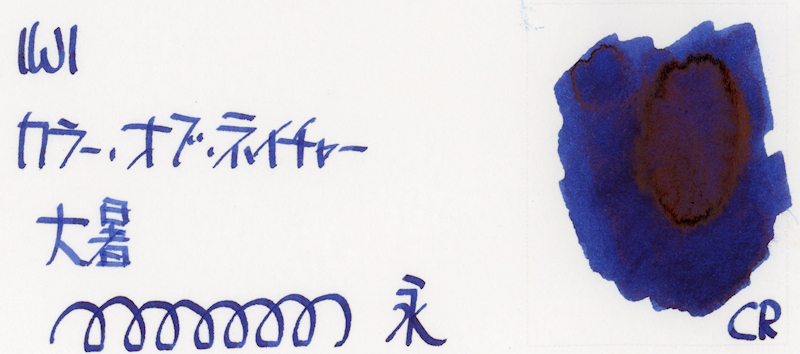 IWI
カラー・オブ・ネイチャー
大暑
永
CR